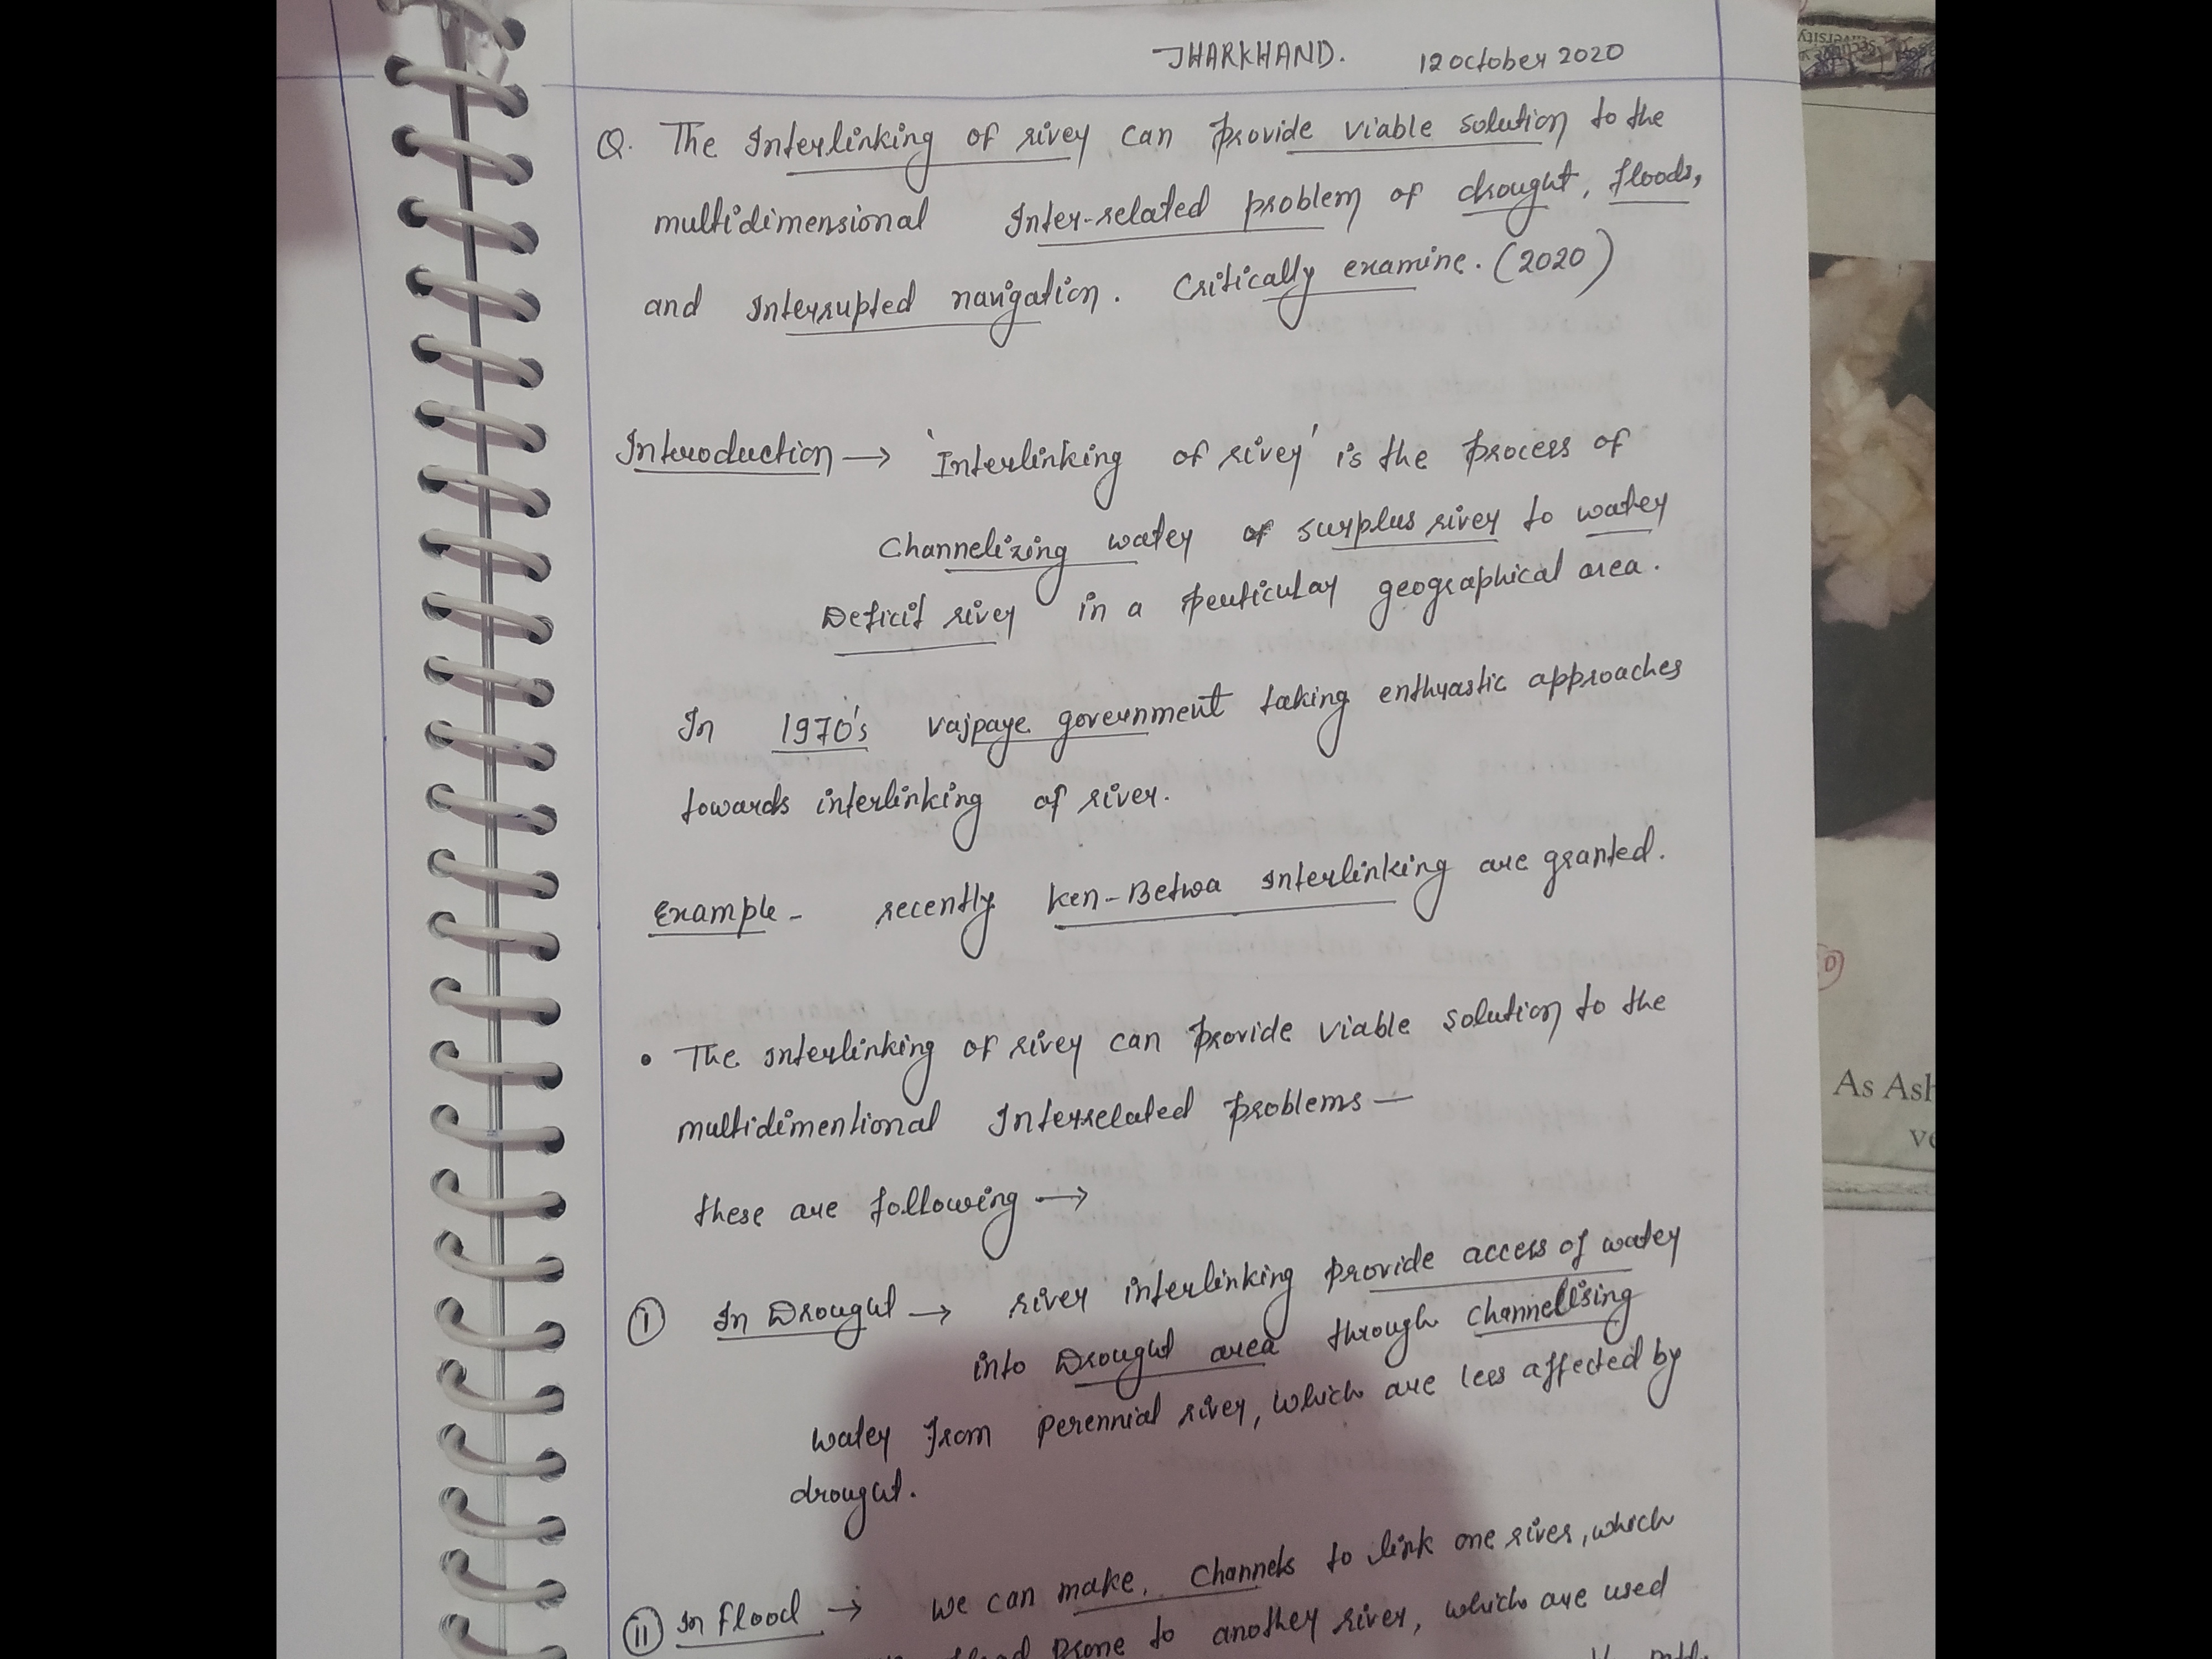 JHARKHAND. 12 October 2020
Q. The Interlinking of river can provide viable solution to the
multidimensional Inter-related problem of drought, floods,
and Interrupted navigation. Critically examine. (2020)
Introduction → 'Interlinking of river' is the process of
Channelizing water of surplus river to water
Deficit river in a perticular geographical area.
In 1970's vajpaye government taking enthyastic approaches
towards interlinking of river.
Example - recently Ken-Betwa interlinking are granted.
• The interlinking of river can provide viable solution to the
multidimentional Interrelated problems —
these are following →
(i) In Drought → river interlinking provide access of water
into Drought area through channelising
water from perennial river, which are less affected by
drought.
(ii) In flood → we can make. Channels to link one river, which
prone to another river, which are used
As Ash
ve